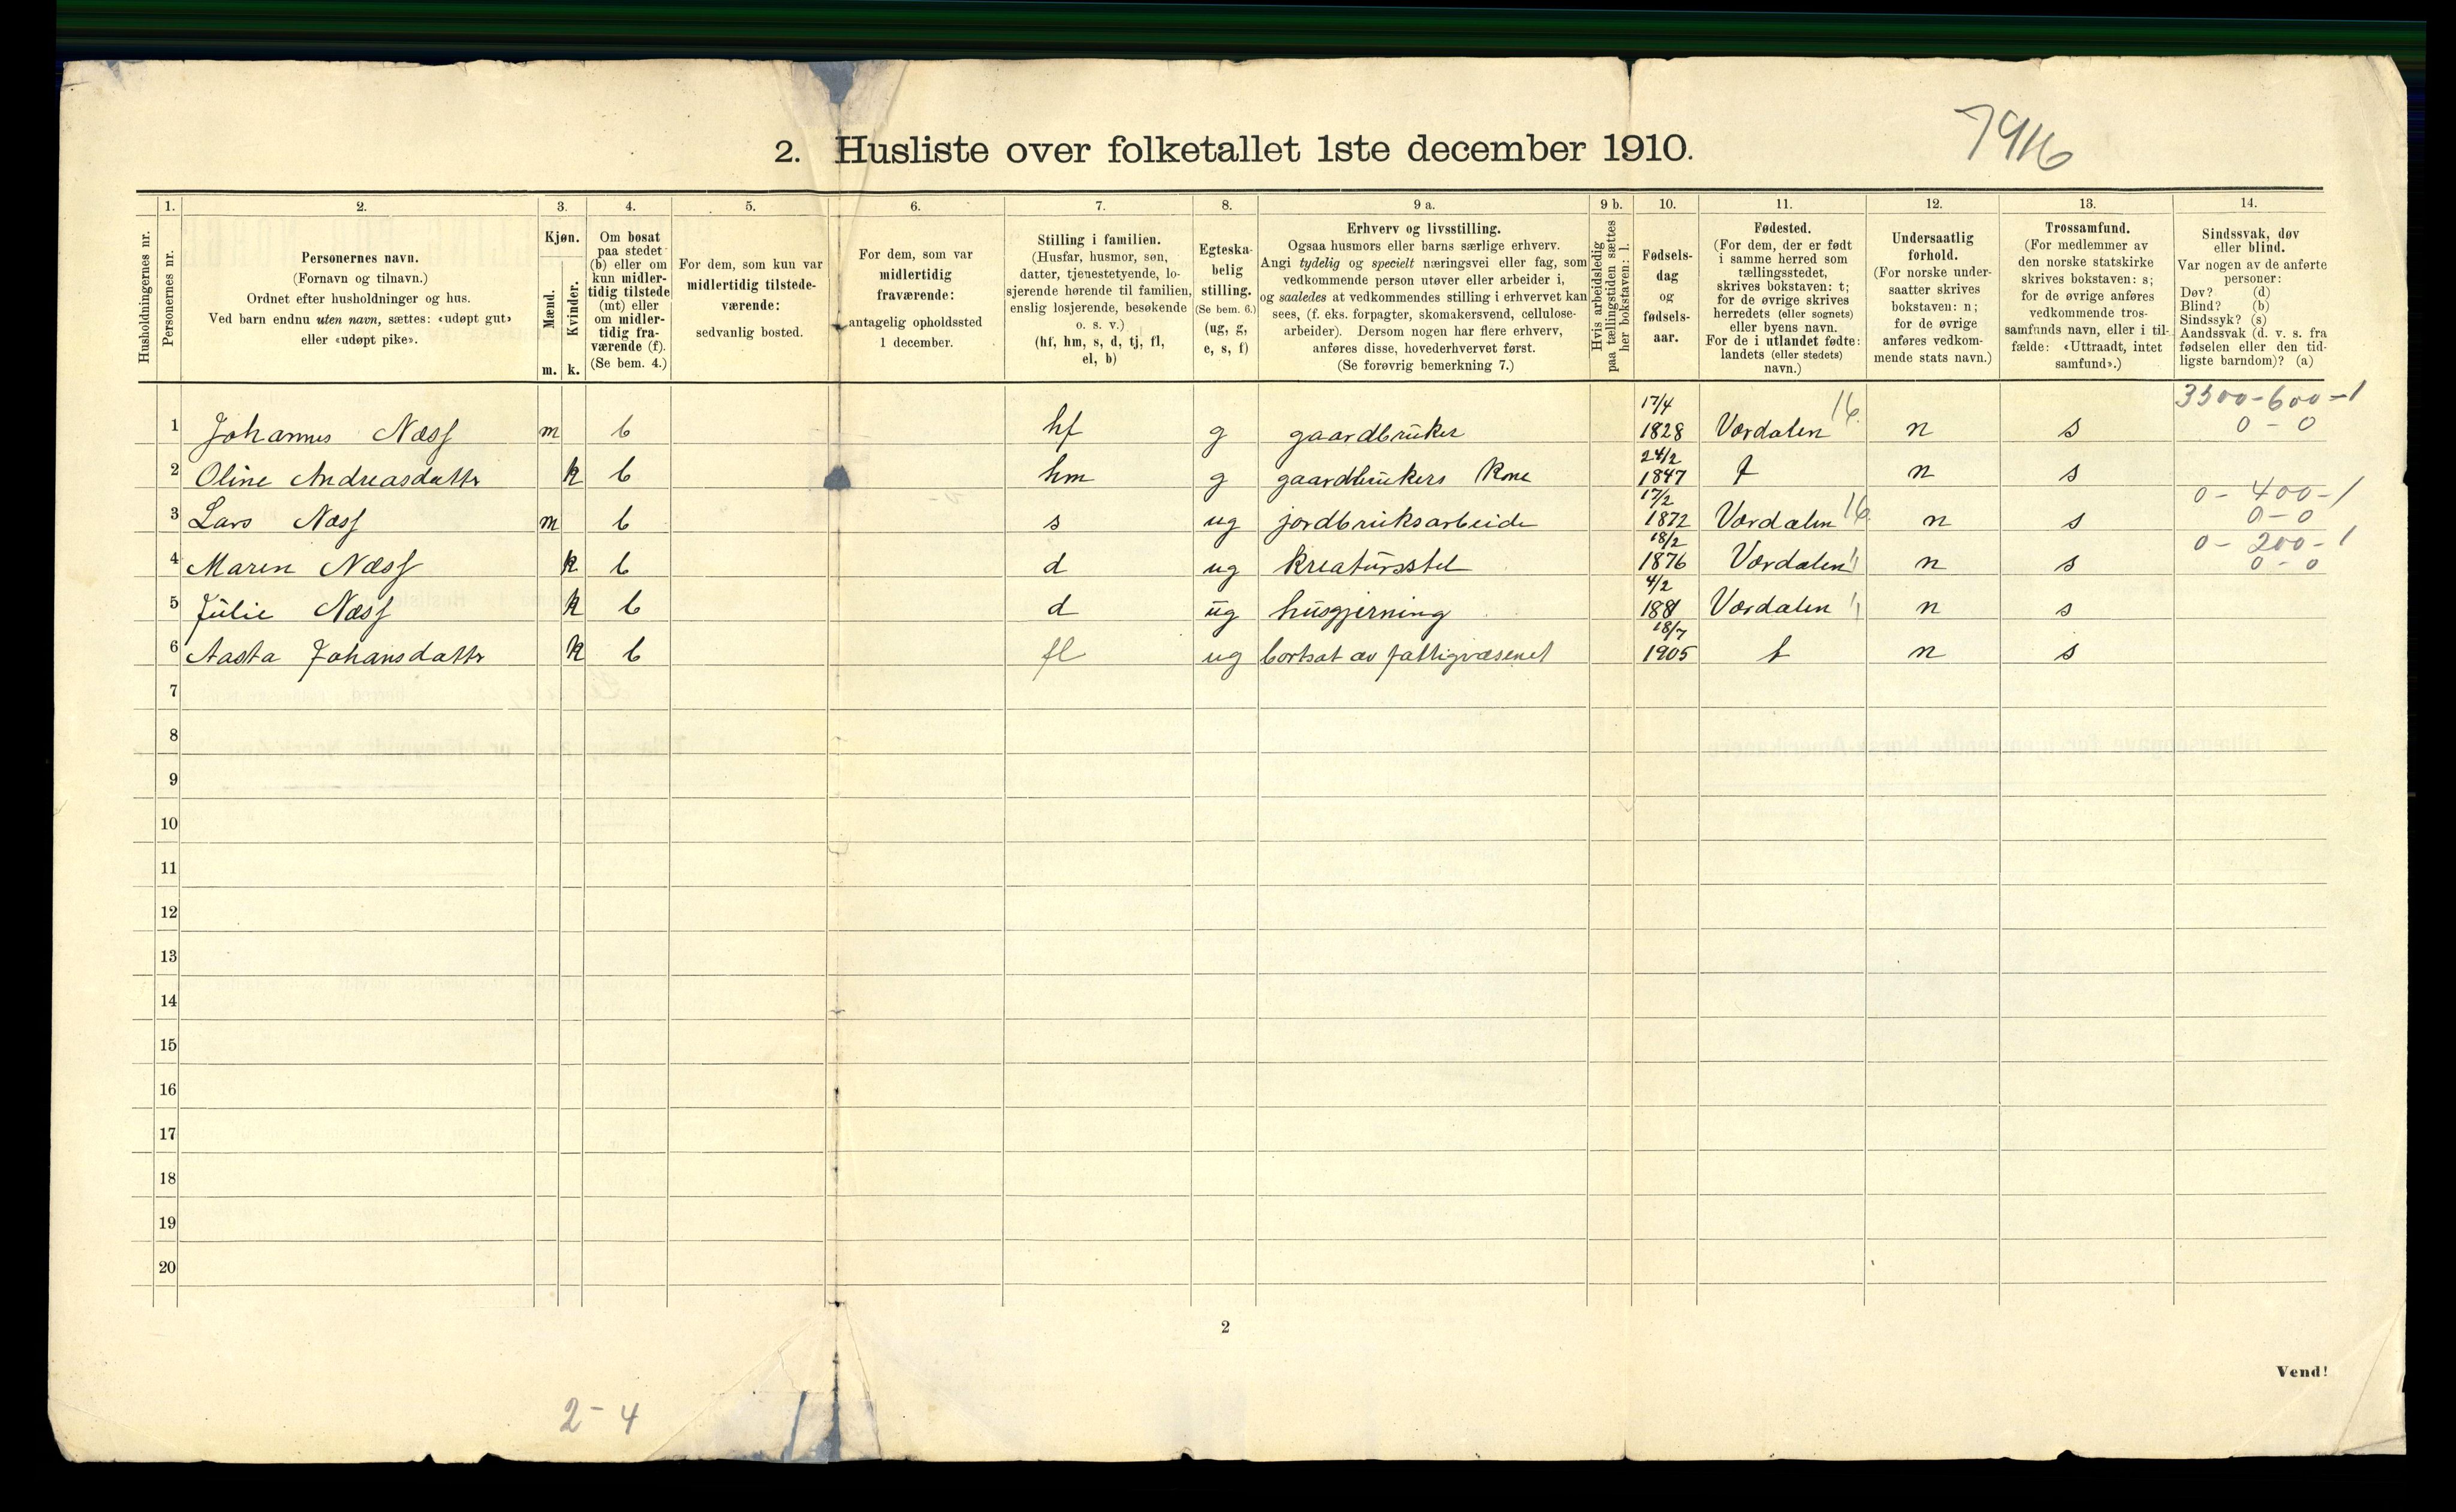 7916
2. Husliste over folketallet 1ste december 1910.
Husholdningernes nr.
1.
Personernes nr.
2.
Personernes navn.
(Fornavn og tilnavn.)
Ordnet efter husholdninger og hus.
Ved barn endnu uten navn, sættes: «udøpt gut»
eller «udøpt pike».
3.
Kjøn.
Mænd.
Kvinder.
m. k.
4.
Om bosat
paa stedet
(b) eller om
kun midler-
tidig tilstede
(mt) eller
om midler-
tidig fra-
værende (f).
(Se bem. 4.)
5.
For dem, som kun var
midlertidig tilstede-
værende:
sedvanlig bosted.
6.
For dem, som var
midlertidig
fraværende:
antagelig opholdssted
1 december.
7.
Stilling i familien.
(Husfar, husmor, søn,
datter, tjenestetyende, lo-
sjerende hørende til familien,
enslig losjerende, besøkende
o. s. v.)
(hf, hm, s, d, tj, fl,
el, b)
8.
Egteska-
belig
stilling.
(Se bem. 6.)
(ug, g,
e, s, f)
9 a.
Erhverv og livsstilling.
Ogsaa husmors eller barns særlige erhverv.
Angi tydelig og specielt næringsvei eller fag, som
vedkommende person utøver eller arbeider i,
og saaledes at vedkommendes stilling i erhvervet kan
sees, (f. eks. forpagter, skomakersvend, cellulose-
arbeider). Dersom nogen har flere erhverv,
anføres disse, hovederhvervet først.
(Se forøvrig bemerkning 7.)
9 b.
Hvis arbeidsledig
paa tællingstiden sættes
her bokstaven: l.
10.
Fødsels-
dag
og
fødsels-
aar.
11.
Fødested.
(For dem, der er født
i samme herred som
tællingsstedet,
skrives bokstaven: t;
for de øvrige skrives
herredets (eller sognets)
eller byens navn.
For de i utlandet fødte:
landets (eller stedets)
navn.)
12.
Undersaatlig
forhold.
(For norske under-
saatter skrives
bokstaven: n;
for de øvrige
anføres vedkom-
mende stats navn.)
13.
Trossamfund.
(For medlemmer av
den norske statskirke
skrives bokstaven: s;
for de øvrige anføres
vedkommende tros-
samfunds navn, eller i til-
fælde: «Uttraadt, intet
samfund».)
14.
Sindssvak, døv
eller blind.
Var nogen av de anførte
personer:
Døv? (d)
Blind? (b)
Sindssyk? (s)
Aandssvak (d. v. s. fra
fødselen eller den tid-
ligste barndom)? (a)
1 Johannes Næss m b hf g gaardbruker 17/4 1828 Værdalen 16 n s 3300-600-1 0-0
2 Oline Andreasdattr k b hm g gaardbrukers kone 24/2 1847 t n s
3 Lars Næss m b s ug jordbruksarbeide 17/2 1872 Værdalen 16 n s 0-400-1 0-0
4 Maren Næss k b d ug kreatursstel 18/2 1876 Værdalen n s 0-200-1 0-0
5 Julie Næss k b d ug husgjerning 4/2 1881 Værdalen n s
6 Aasta Johansdattr k b fl ug bortsat av fattigvæsenet 18/7 1905 t n s
7
8
9
10
11
12
13
14
15
16
17
18
19
20
2
Vend!
2-4